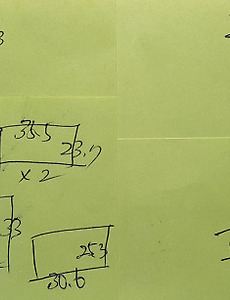 35.5
23.7
x 2
33
25.3
30.6